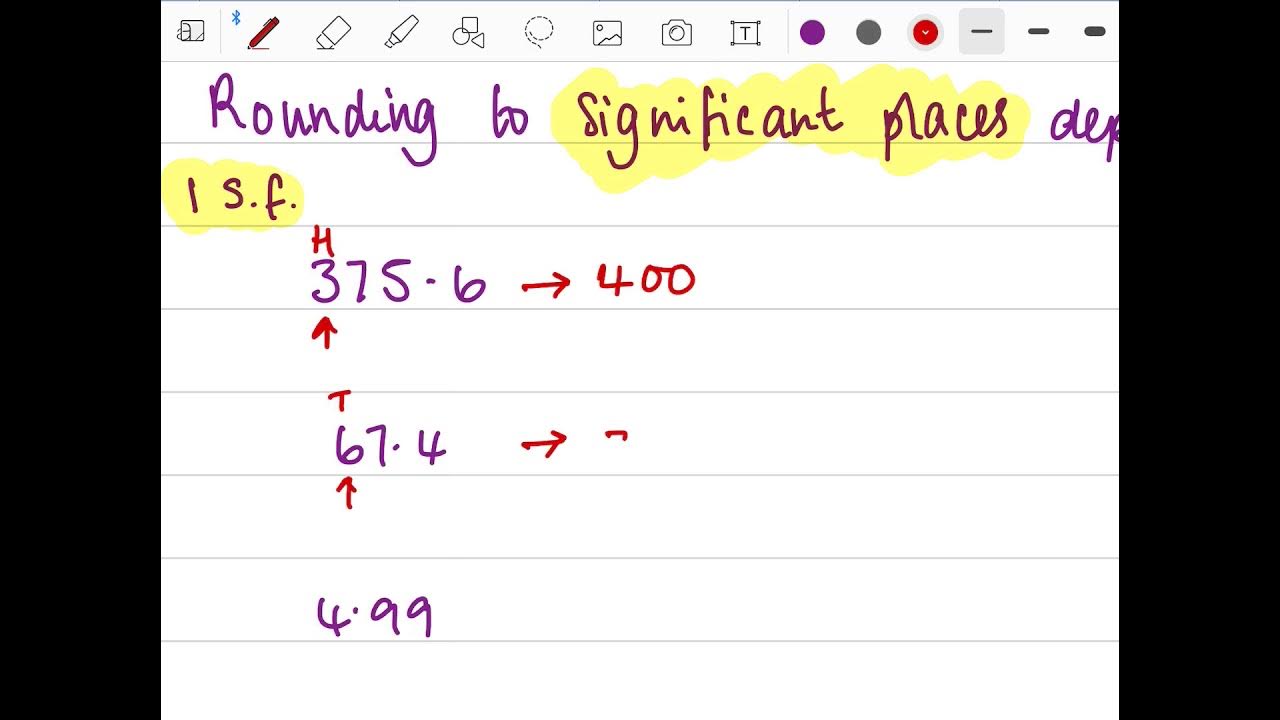 T
Rounding to significant places dep
1 s.f.
H
375.6 → 400
T
67.4 →
4.99